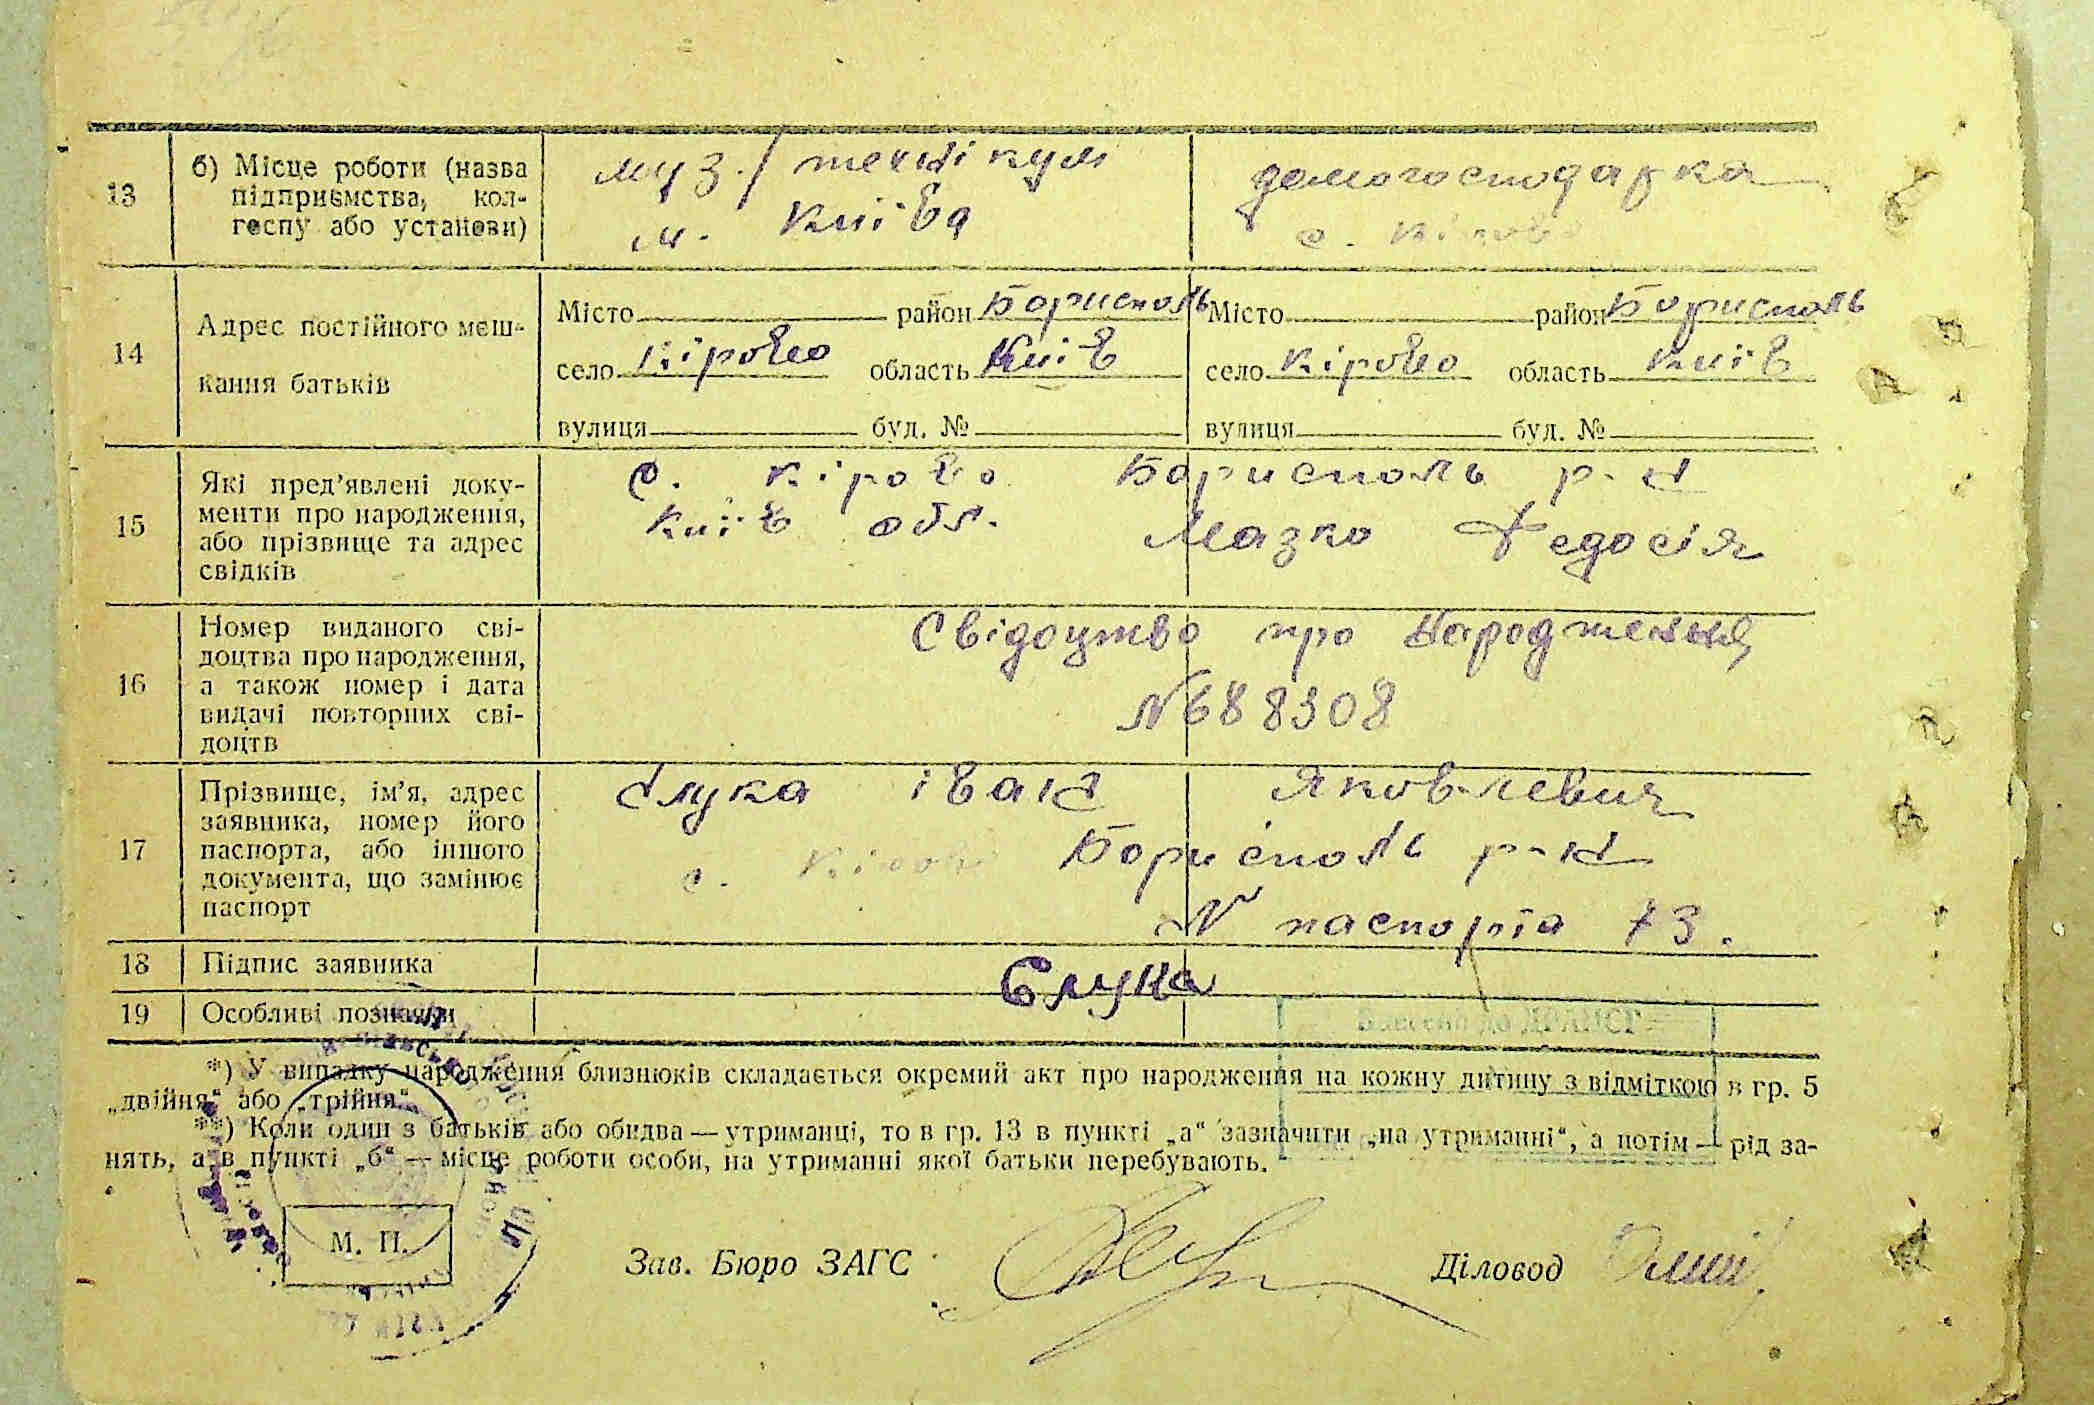 13
б) Місце роботи (назва
підприємства, кол-
госпу або установи)
муз. технікум
м. Київа
домогосподарка
с. Кірово
14
Адрес постійного меш-
кання батьків
Місто район Бориспіль
село Кірово область Київ
вулиця буд. №
Місто район Бориспіль
село Кірово область Київ
вулиця буд. №
15
Які пред’явлені доку-
менти про народження,
або прізвище та адрес
свідків
с. Кірово Борисполь р-н
Київ обл. Мазко Федосія
16
Номер виданого сві-
доцтва про народження,
а також номер і дата
видачі повторних сві-
доцтв
Свідоцтво про народження
№688308
17
Прізвище, ім’я, адрес
заявника, номер його
паспорта, або іншого
документа, що замінює
паспорт
Слука Іван Яковлевич
с. Кірово Борисполь р-н
№ паспорта 73.
18
Підпис заявника
Слука
19
Особливі познаки
Внесено до ДРАЦСГ
*) У випадку народження близнюків складається окремий акт про народження на кожну дитину з відміткою в гр. 5
„двійня“ або „трійня“.
**) Коли один з батьків або обидва — утриманці, то в гр. 13 в пункті „а“ зазначити „на утриманні“, а потім — рід за-
нять, а в пункті „б“ — місце роботи особи, на утриманні якої батьки перебувають.
М. П.
Зав. Бюро ЗАГС
Діловод